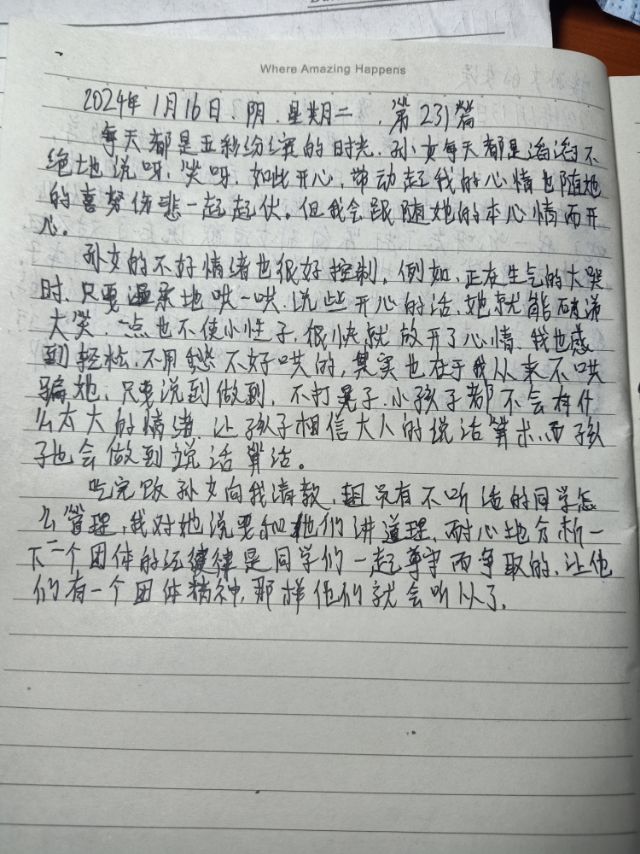 Where Amazing Happens
2024年1月16日.阴.星期二.第231篇
每天都是五彩缤纷的时光.孙女每天都是滔滔不
绝地说呀.笑呀.如此开心,带动起我的心情也随她
的喜努伤悲一起起伏。但我会跟随她的本心情而开
心。
孙女的不好情绪也很好控制.例如.正在生气的大哭
时.只要温柔地哄一哄.说些开心的话,她就能破涕
大笑.一点也不使小性子.很快就放开了心情.我也感
到轻松.不用愁不好哄的,其实也在于我从来不哄
骗她.只要说到做到.不打晃子.小孩子都不会有什
么太大的情绪.让孩子相信大人的说话算术.而孩
子也会做到说话算话。
吃完饭孙女向我请教,组员有不听话的同学怎
么管理,我对她说要和他们讲道理.耐心地分析一
下一个团体的纪律是同学们一起尊守而争取的.让他
们有一个团体精神,那样他们就会听从了.